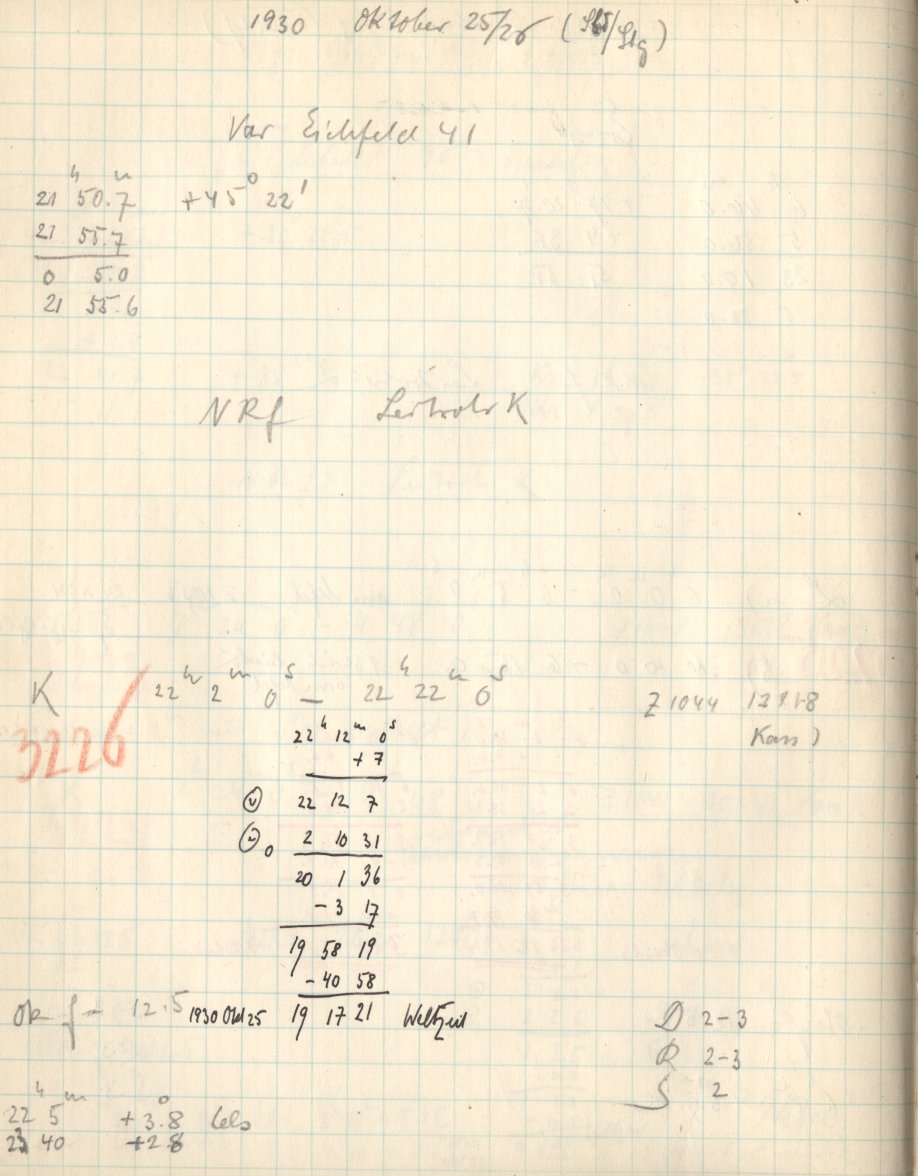 1930 Oktober 25/26 (Sbd/Stg)
Var Eichfeld 41
21 h 50.7 m +45° 22'
21 55.7
0 5.0
21 55.6
NRf Leitrohr K
K 22h 2m 0s — 22h 22m 0s Z 1044
3226
Kass)
22h 12m 0s
+ 7
22 12 7
2 10 31
20 1 36
- 3 17
19 58 19
- 40 58
Ok f = 12.5 1930 Okt 25 19 17 21 Weltzeit
D 2-3
R 2-3
S 2
22h 5m +3.8° Cels
23 40 +2.8